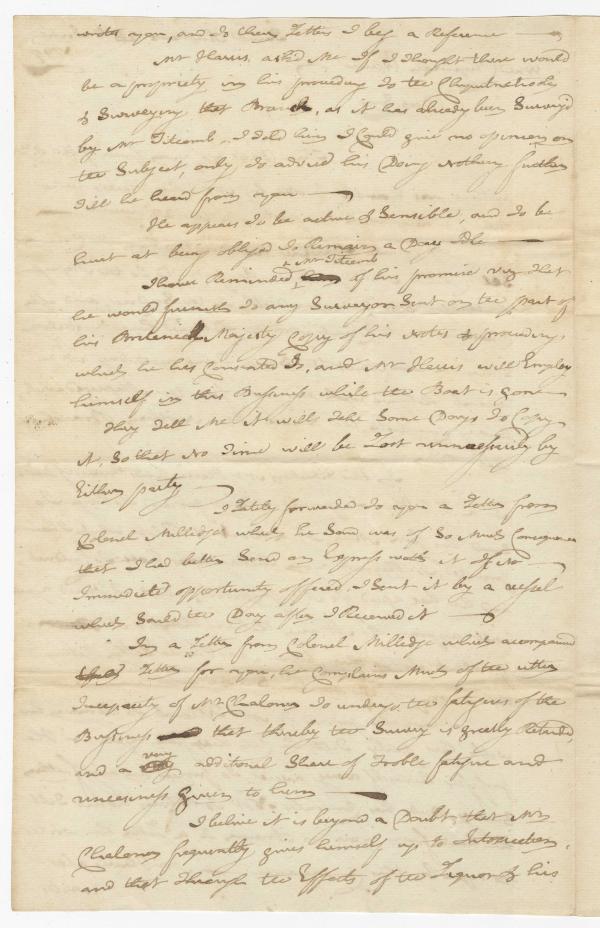 writes you, and to their Letters I beg a Reference
Mr Harris asked Me If I thought there would
be a propriety in his proceeding to the Cheputnetecook
& Surveying that Branch, as it has already been Survey'd
by Mr Titcomb, I told him I Could give no opinion on
the Subject, only to advise his Doing Nothing further
till he heard from you
He appears to be active & Sensible, and to be
hurt at being oblig'd to Remain a Day Idle
Mr Titcomb
I have Reminded of his promise viz that
he would furnish to any Surveyor Sent on the part of
his Britanick Majesty Copy of his Notes & proceedings
which he has Consented to, and Mr Harris will Employ
himself in this Business while the Boat is gone
they tell Me it will take Some Days to Copy
it, So that No time will be Lost unnecessarily by
Either party
I Lately forwarded to you a Letter from
Colonel Millidge which he Said was of So Much Consequence
that I had better Send an Express with it If No
Immediate opportunity offered, I Sent it by a vessel
which Sailed the Day after I Received it
In a Letter from Colonel Millidge which accompanied
Letter for you, he Complains Much of the utter
Incapacity of Mr Chaloner to undergo the fatigues of the
Business that thereby the Survey is greatly Retarded,
very
and a additional Share of Troble fatigue and
uneasiness given to him
I believe it is beyond a Doubt that Mr
Chaloner frequently gives himself up to Intoxication,
and that through the Effects of the Liquor & his